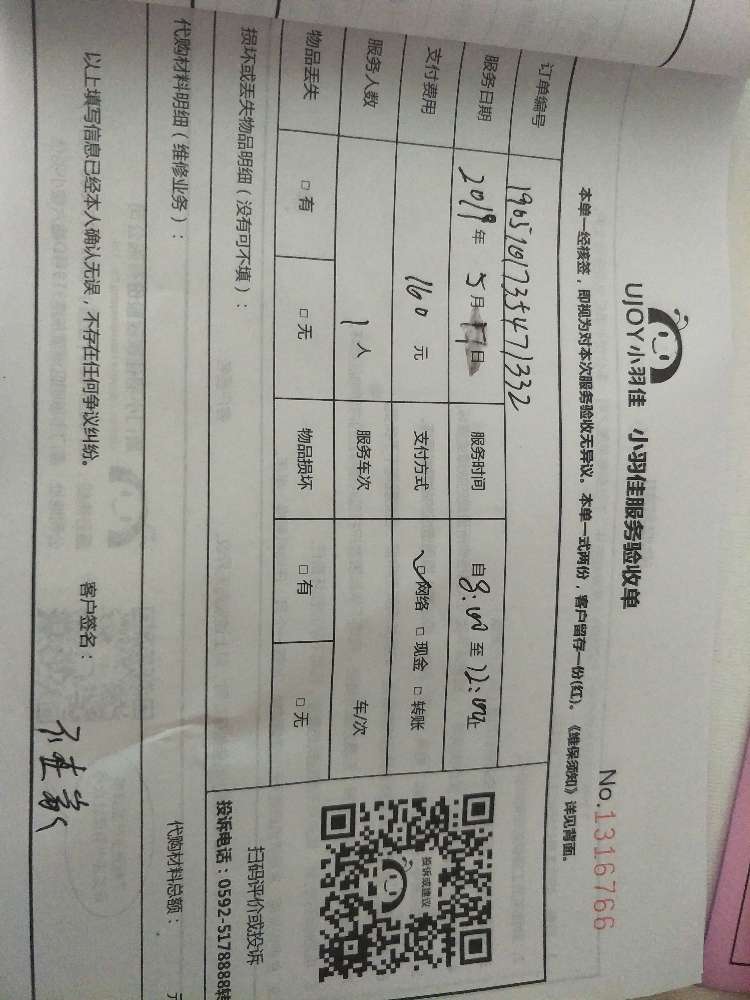 UJOY小羽佳 小羽佳服务验收单
No.1316766
本单一经核签，即视为对本次服务验收无异议。本单一式两份，客户留存一份(红)。《维保须知》详见背面。
订单编号 1905101735471332
服务日期 2019年 5月 日 服务时间 自8:00至12:00止
支付费用 160 元 支付方式 □网络 □现金 □转账
服务人数 1 人 服务车次 车/次
物品丢失 □有 □无 物品损坏 □有 □无
损坏或丢失物品明细（没有可不填）：
代购材料明细（维修业务）： 代购材料总额： 元
以上填写信息已经本人确认无误，不存在任何争议纠纷。 客户签名：
投诉或建议
扫码评价或投诉
投诉电话：0592-5178888转